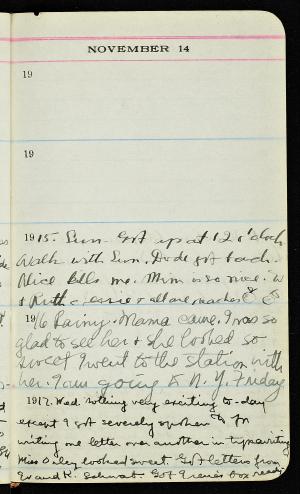 NOVEMBER 14
19
19
1915. Sun. Got up at 12 o'clock
Walk with Sun. Dude got back.
Alice tells me. Mim is so nice.
& Ruth
1916 Rainy. Mama came. I was so
glad to see her & she looked so
sweet I went to the station with
her. I am going to N.Y. Friday
1917. Wed. Nothing very exciting to-day
except I got severely spoken to for
writing one letter over another in typewriting
Miss looked sweet. Got letters from
Ev and K. Got box ready